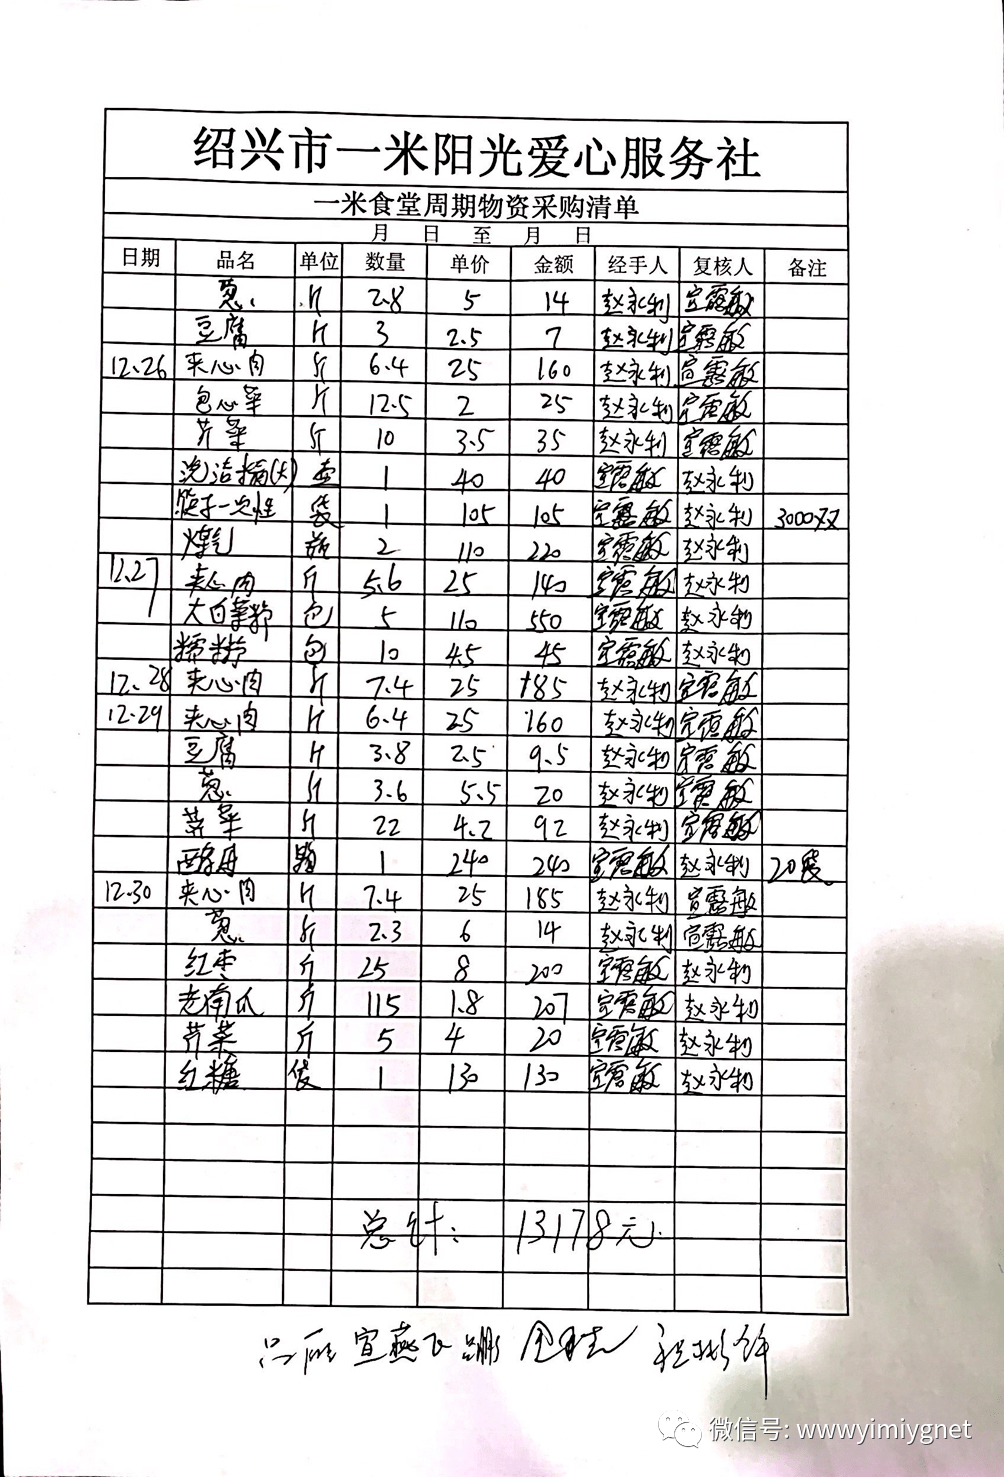 绍兴市一米阳光爱心服务社
一米食堂周期物资采购清单
月 日 至 月 日
日期 品名 单位 数量 单价 金额 经手人 复核人 备注
葱 斤 2.8 5 14 赵永利 宣霞敏
豆腐 斤 3 2.5 7 赵永利 宣霞敏
12.26 夹心肉 斤 6.4 25 160 赵永利 宣霞敏
包心菜 斤 12.5 2 25 赵永利 宣霞敏
芹菜 斤 10 3.5 35 赵永利 宣霞敏
洗洁精(大) 1 40 40 宣霞敏 赵永利
筷子一次性 袋 1 105 105 宣霞敏 赵永利 3000双
煤气 瓶 2 110 220 宣霞敏 赵永利
12.27 夹心肉 斤 5.6 25 140 宣霞敏 赵永利
包 5 110 550 宣霞敏 赵永利
糯米粉 包 10 45 45 宣霞敏 赵永利
12.28 夹心肉 斤 7.4 25 185 赵永利 宣霞敏
12.29 夹心肉 斤 6.4 25 160 赵永利 宣霞敏
豆腐 斤 3.8 2.5 9.5 赵永利 宣霞敏
葱 斤 3.6 5.5 20 赵永利 宣霞敏
菜 斤 22 4.2 92 赵永利 宣霞敏
箱 1 240 240 宣霞敏 赵永利 20袋
12.30 夹心肉 斤 7.4 25 185 赵永利 宣霞敏
葱 斤 2.3 6 14 赵永利 宣霞敏
红枣 斤 25 8 200 宣霞敏 赵永利
老南瓜 斤 115 1.8 207 宣霞敏 赵永利
芹菜 斤 5 4 20 宣霞敏 赵永利
红糖 袋 1 130 130 宣霞敏 赵永利
总计: 13178元
宣燕飞
微信号: wwwyimiygnet